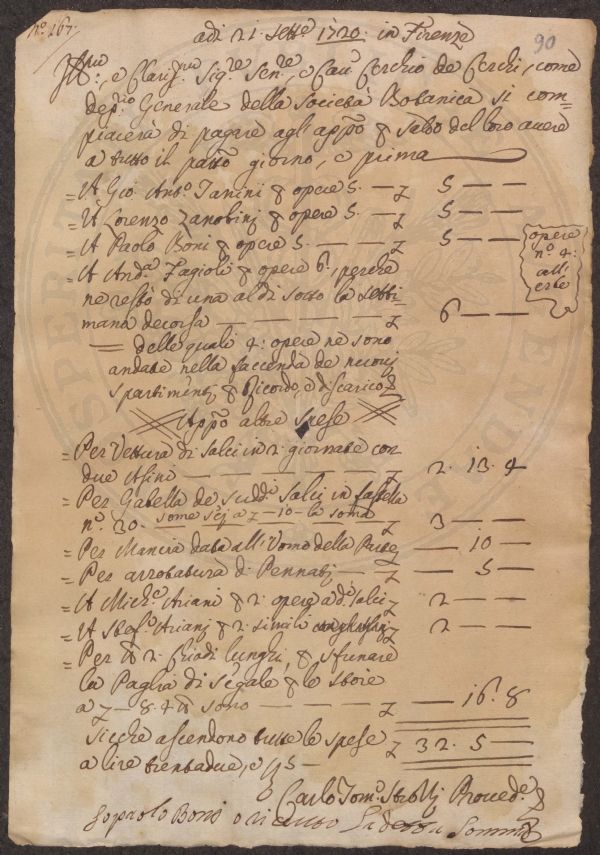 nº. 167.
90
adi 21. sett.e 1720. in Firenze
Ill.mo, e Claris.mo Sig.re Sen.re, e Cau.e Cerchio de Cerchi, come
dep.rio Generale della Società Botanica si com=
piacerà di pagare agl'app.o p saldo del loro auere
a tutto il pass.o giorno, e prima
= A Gio Ant.o Tanini p opere 5. — 7 5 — —
= A Lorenzo Zanobinj p opere 5. — 7 5 — —
= A Paolo Boni p opere 5. — — — 7 5 — —
= A And.a Fagioli p opere 6., perche
ne restò di una al di sotto la setti
mana decorsa — — — — — 7 6 — —
opere
nº. 4:
all'
erbe
= delle quali 4: opere ne sono
andate nella faccenda de nuouj
spartimentj p Ricordo, e discarico
App.o altre spese
= Per Vettura di salci in 2. giornate con
due Asini — — — — — — 7 2. 13. 4
= Per Gabella de sudd.i salci in fastella
nº. 30. some sej a 7 — 10 — la soma 7 3 — —
= Per Mancia data all'Uomo della 7 — 10 —
= Per arrotatura di Pennatj — — 7 — 5 —
= A Mich.e Arianj p 2. opere a d.i salci 7 2 — —
= A Stef.o Arianj p 2. simili 7 2 — —
= Per lb 2. Chiodi lunghi, p
la Paglia di segale p le stoie
a 7 — 8. 4 lb sono — — — — 7 — 16. 8
Sicche ascendono tutte le spese 7 32. 5 —
a lire trentadue, e ss 5 —
Carlo Tom.o Strozzj Proued.e
Io Paolo Boni o riceuto la detta somma